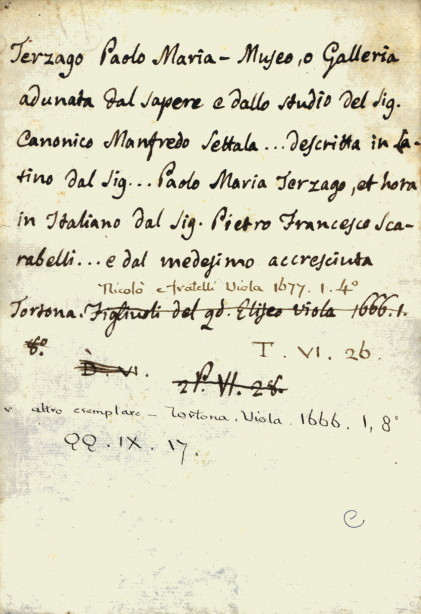 Terzago Paolo Maria – Museo, o Galleria
adunata dal sapere e dallo studio del Sig.
Canonico Manfredo Settala ... descritta in La-
tino dal Sig... Paolo Maria Terzago, et hora
in Italiano dal Sig. Pietro Francesco Sca-
rabelli... e dal medesimo accresciuta
Nicolò e fratelli Viola 1677. 1. 4°
Tortona. Figliuoli del qd. Eliseo Viola 1666. 1.
8°.
T. VI. 26.
D. VI.
VI. 28.
v. altro exemplare – Tortona. Viola. 1666. 1, 8°
QQ. IX. 17.
C